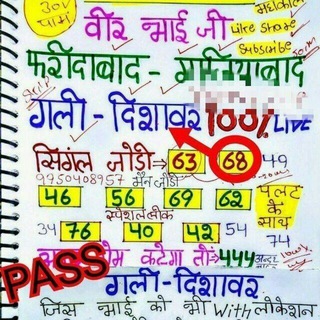 30V
पानी
वीर भाई जी
Like Share
Subscribe
फरीदाबाद - गाजियाबाद
गली - दिशावर 100% LIVE
सिंगल जोडी→ 63 68 49
9750408957 मैन जोडी
46 56 69 62 पलट
के
साथ
स्पेशल लीक
34 76 40 42 54
74
कटेगा तो→ 444 अन्दर
PASS
गली-दिशावर
जिस भाई को भी With लोकेशन